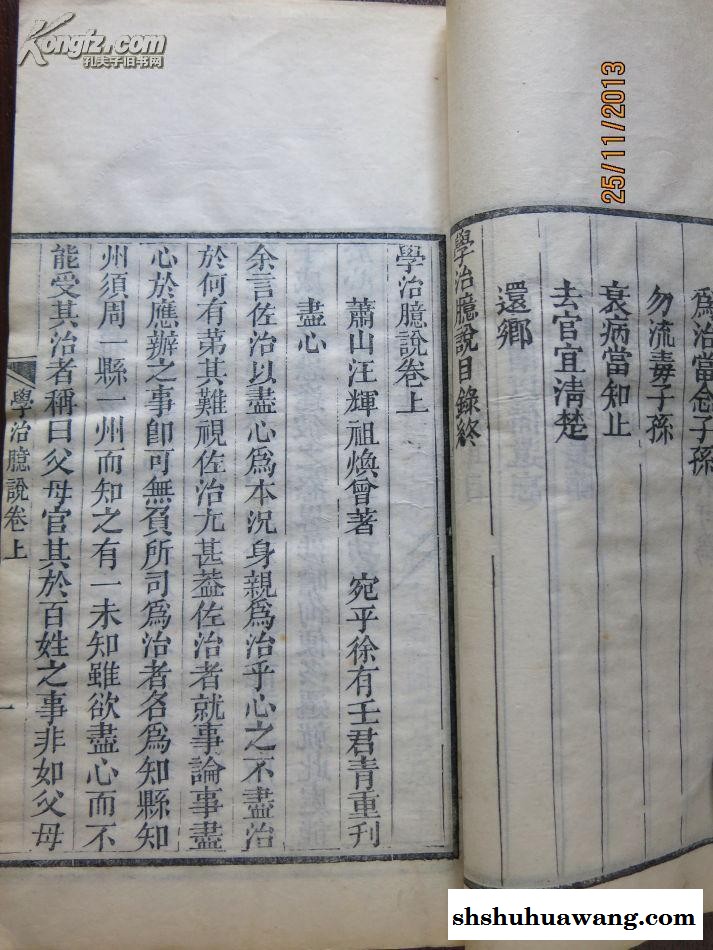 Kongfz.com
孔夫子旧书网
25/11/2013
為治當念子孫
勿流毒子孫
衰病當知止
去官宜淸楚
還鄉
學治臆說目錄終
學治臆說卷上
蕭山汪輝祖煥曾著　宛平徐有壬君青重刊
盡心
余言佐治以盡心為本况身親為治乎心之不盡治
於何有第其難視佐治尤甚葢佐治者就事論事盡
心於應辦之事卽可無負所司為治者名為知縣知
州須周一縣一州而知之有一未知雖欲盡心而不
能受其治者稱曰父母官其於百姓之事非如父母
學治臆說卷上
一
shshuhuawang.com